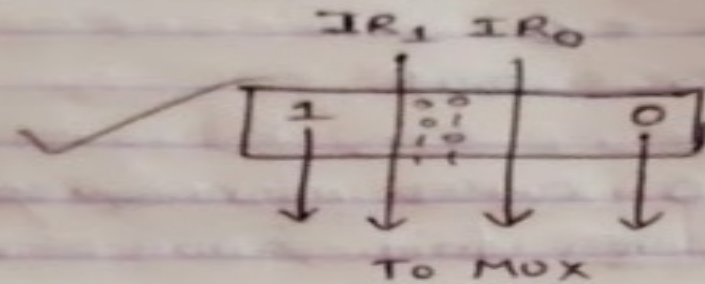 IR1 IR0
1 00 0
01
10
11
To MUX